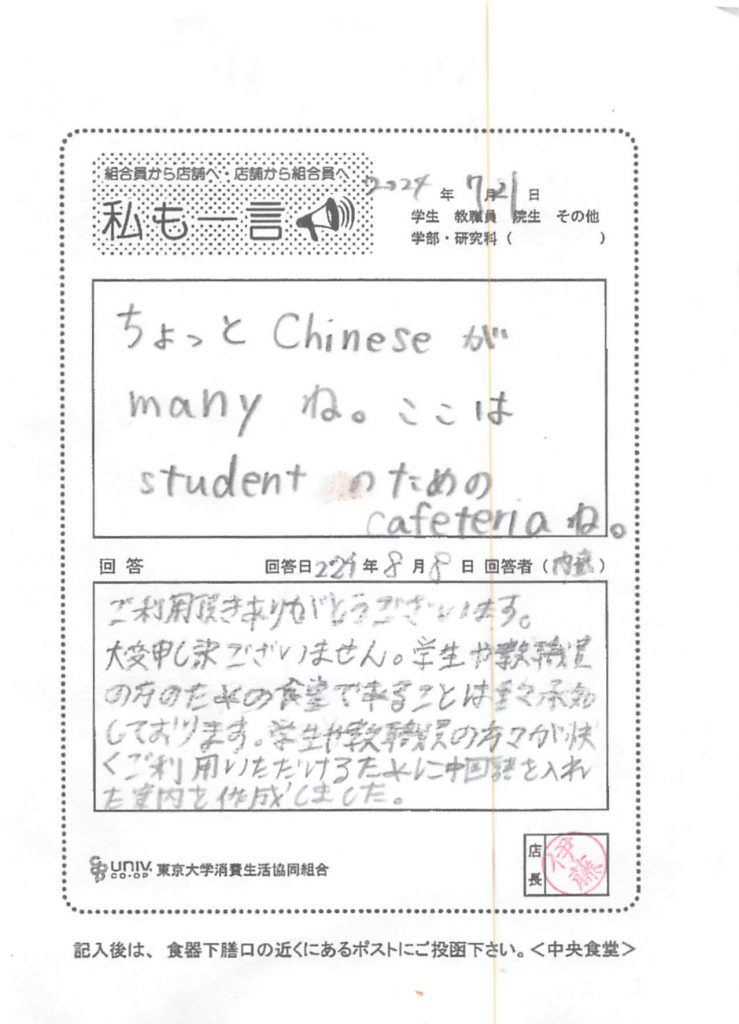 組合員から店舗へ・店舗から組合員へ
私も一言
2024 年 7 月 21 日
学生 教職員 院生 その他
学部・研究科（ ）
ちょっと Chinese が
many ね。ここは
student のための
cafeteria ね。
回答 回答日 224 年 8 月 8 日 回答者（内藤）
ご利用頂きありがとうございます。
大変申し訳ございません。学生や教職員
の方のための食堂であることは重々承知
しております。学生や教職員の方々が快
くご利用いただけるために中国語を入れ
た案内を作成しました。
univ. CO-OP 東京大学消費生活協同組合
店長 伊藤
記入後は、食器下膳口の近くにあるポストにご投函下さい。＜中央食堂＞